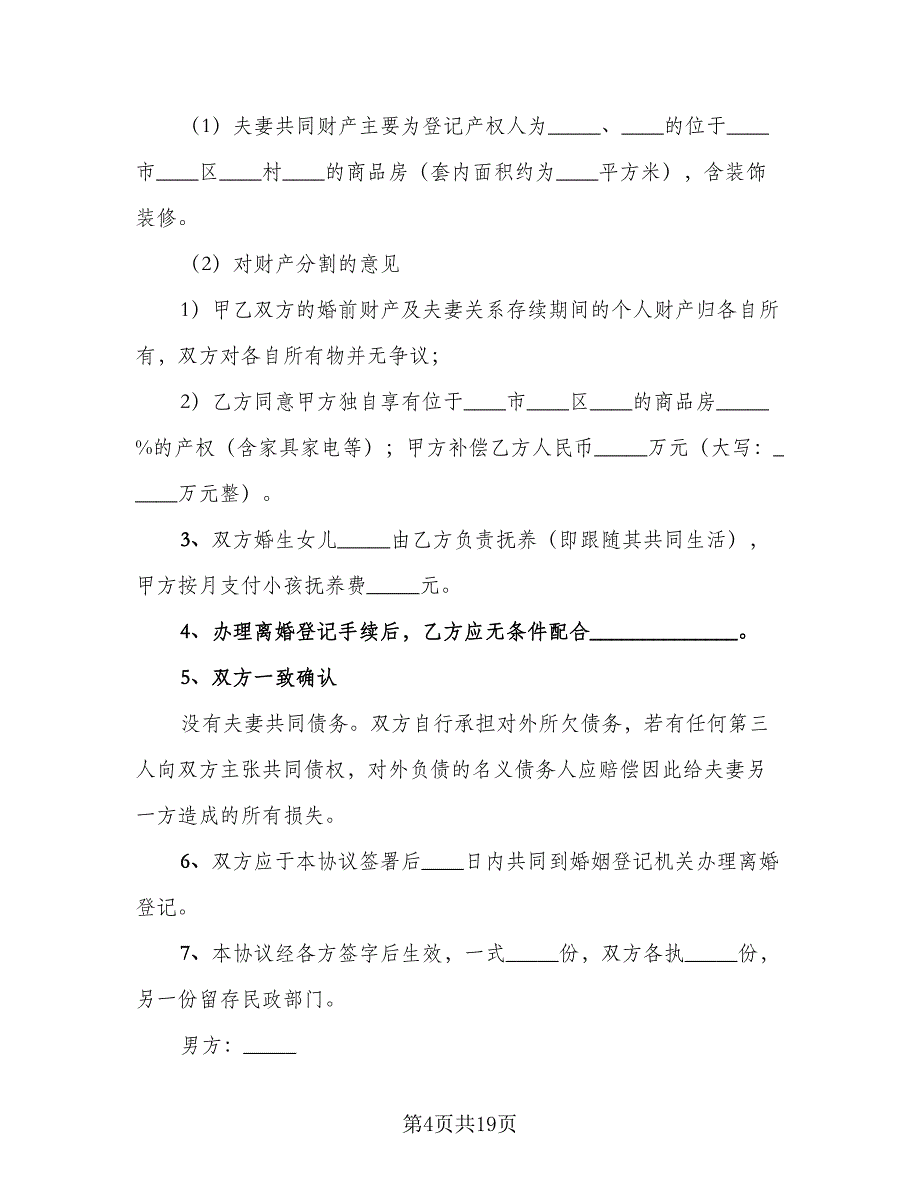 （1）夫妻共同财产主要为登记产权人为_____、____的位于____
市____区____村____的商品房（套内面积约为____平方米），含装饰
装修。
（2）对财产分割的意见
1）甲乙双方的婚前财产及夫妻关系存续期间的个人财产归各自所
有，双方对各自所有物并无争议；
2）乙方同意甲方独自享有位于____市____区____的商品房_____
%的产权（含家具家电等）；甲方补偿乙方人民币_____万元（大写：_
____万元整）。
3、双方婚生女儿_____由乙方负责抚养（即跟随其共同生活），
甲方按月支付小孩抚养费_____元。
4、办理离婚登记手续后，乙方应无条件配合______________。
5、双方一致确认
没有夫妻共同债务。双方自行承担对外所欠债务，若有任何第三
人向双方主张共同债权，对外负债的名义债务人应赔偿因此给夫妻另
一方造成的所有损失。
6、双方应于本协议签署后____日内共同到婚姻登记机关办理离婚
登记。
7、本协议经各方签字后生效，一式_____份，双方各执_____份，
另一份留存民政部门。
男方：_____
第4页共19页